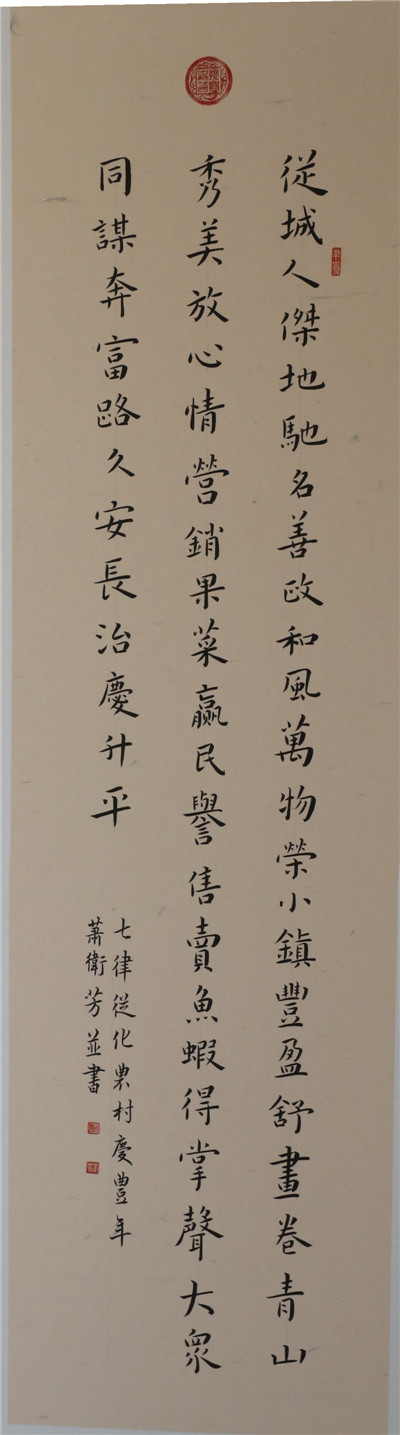 從城人傑地馳名善政和風萬物榮小鎮豐盈舒畫卷青山
秀美放心情營銷果菜贏民譽售賣魚蝦得掌聲大眾
同謀奔富路久安長治慶升平
七律從化農村慶豊年
蕭衛芳並書